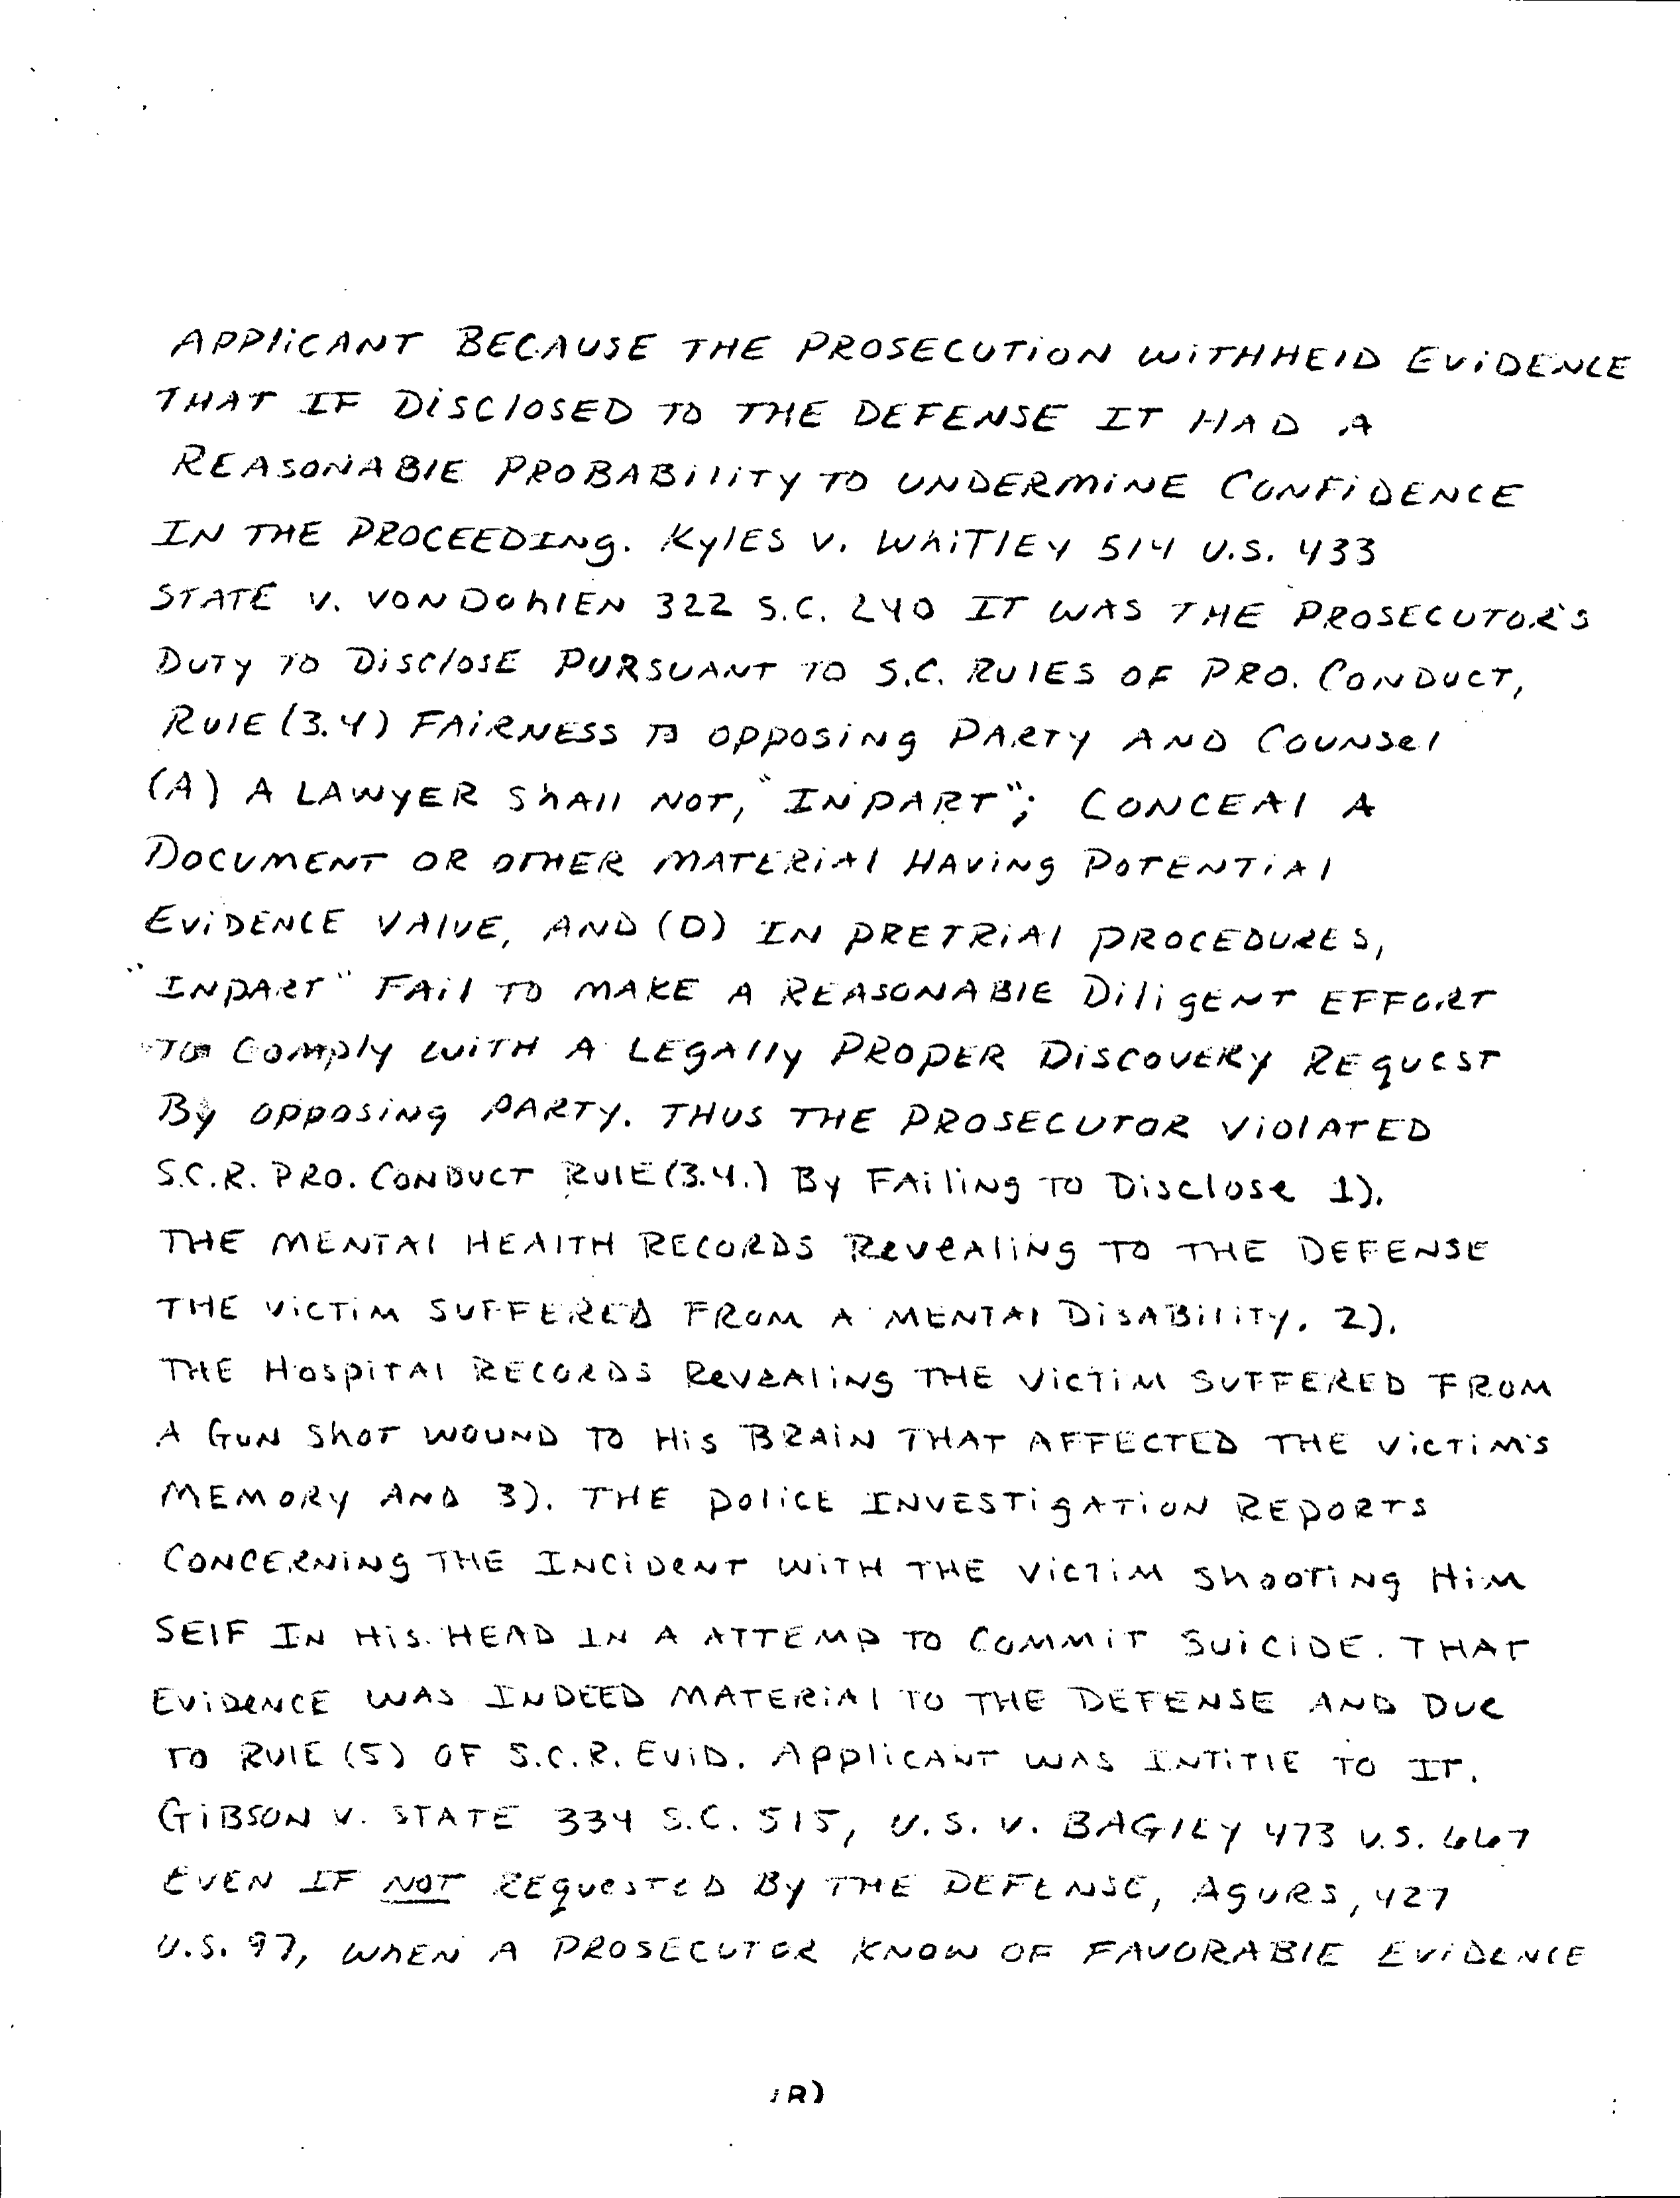 APPLICANT BECAUSE THE PROSECUTION WITHHELD EVIDENCE
THAT IF DISCLOSED TO THE DEFENSE IT HAD A
REASONABLE PROBABILITY TO UNDERMINE CONFIDENCE
IN THE PROCEEDING. KYLES V. WHITLEY 514 U.S. 433
STATE V. VONDOHLEN 322 S.C. 240 IT WAS THE PROSECUTOR'S
DUTY TO DISCLOSE PURSUANT TO S.C. RULES OF PRO. CONDUCT,
RULE (3.4) FAIRNESS TO OPPOSING PARTY AND COUNSEL
(A) A LAWYER SHALL NOT, "INPART"; CONCEAL A
DOCUMENT OR OTHER MATERIAL HAVING POTENTIAL
EVIDENCE VALUE, AND (D) IN PRETRIAL PROCEDURES,
"INPART" FAIL TO MAKE A REASONABLE DILIGENT EFFORT
TO COMPLY WITH A LEGALLY PROPER DISCOVERY REQUEST
BY OPPOSING PARTY. THUS THE PROSECUTOR VIOLATED
S.C.R. PRO. CONDUCT RULE (3.4.) BY FAILING TO DISCLOSE 1).
THE MENTAL HEALTH RECORDS REVEALING TO THE DEFENSE
THE VICTIM SUFFERED FROM A MENTAL DISABILITY. 2).
THE HOSPITAL RECORDS REVEALING THE VICTIM SUFFERED FROM
A GUN SHOT WOUND TO HIS BRAIN THAT AFFECTED THE VICTIM'S
MEMORY AND 3). THE POLICE INVESTIGATION REPORTS
CONCERNING THE INCIDENT WITH THE VICTIM SHOOTING HIM
SELF IN HIS HEAD IN A ATTEMP TO COMMIT SUICIDE. THAT
EVIDENCE WAS INDEED MATERIAL TO THE DEFENSE AND DUE
TO RULE (5) OF S.C.R. EVID. APPLICANT WAS INTITLE TO IT.
GIBSON V. STATE 334 S.C. 515, U.S. V. BAGILY 473 U.S. 667
EVEN IF NOT REQUESTED BY THE DEFENSE, AGURS, 427
U.S. 97, WHEN A PROSECUTOR KNOW OF FAVORABLE EVIDENCE
R)